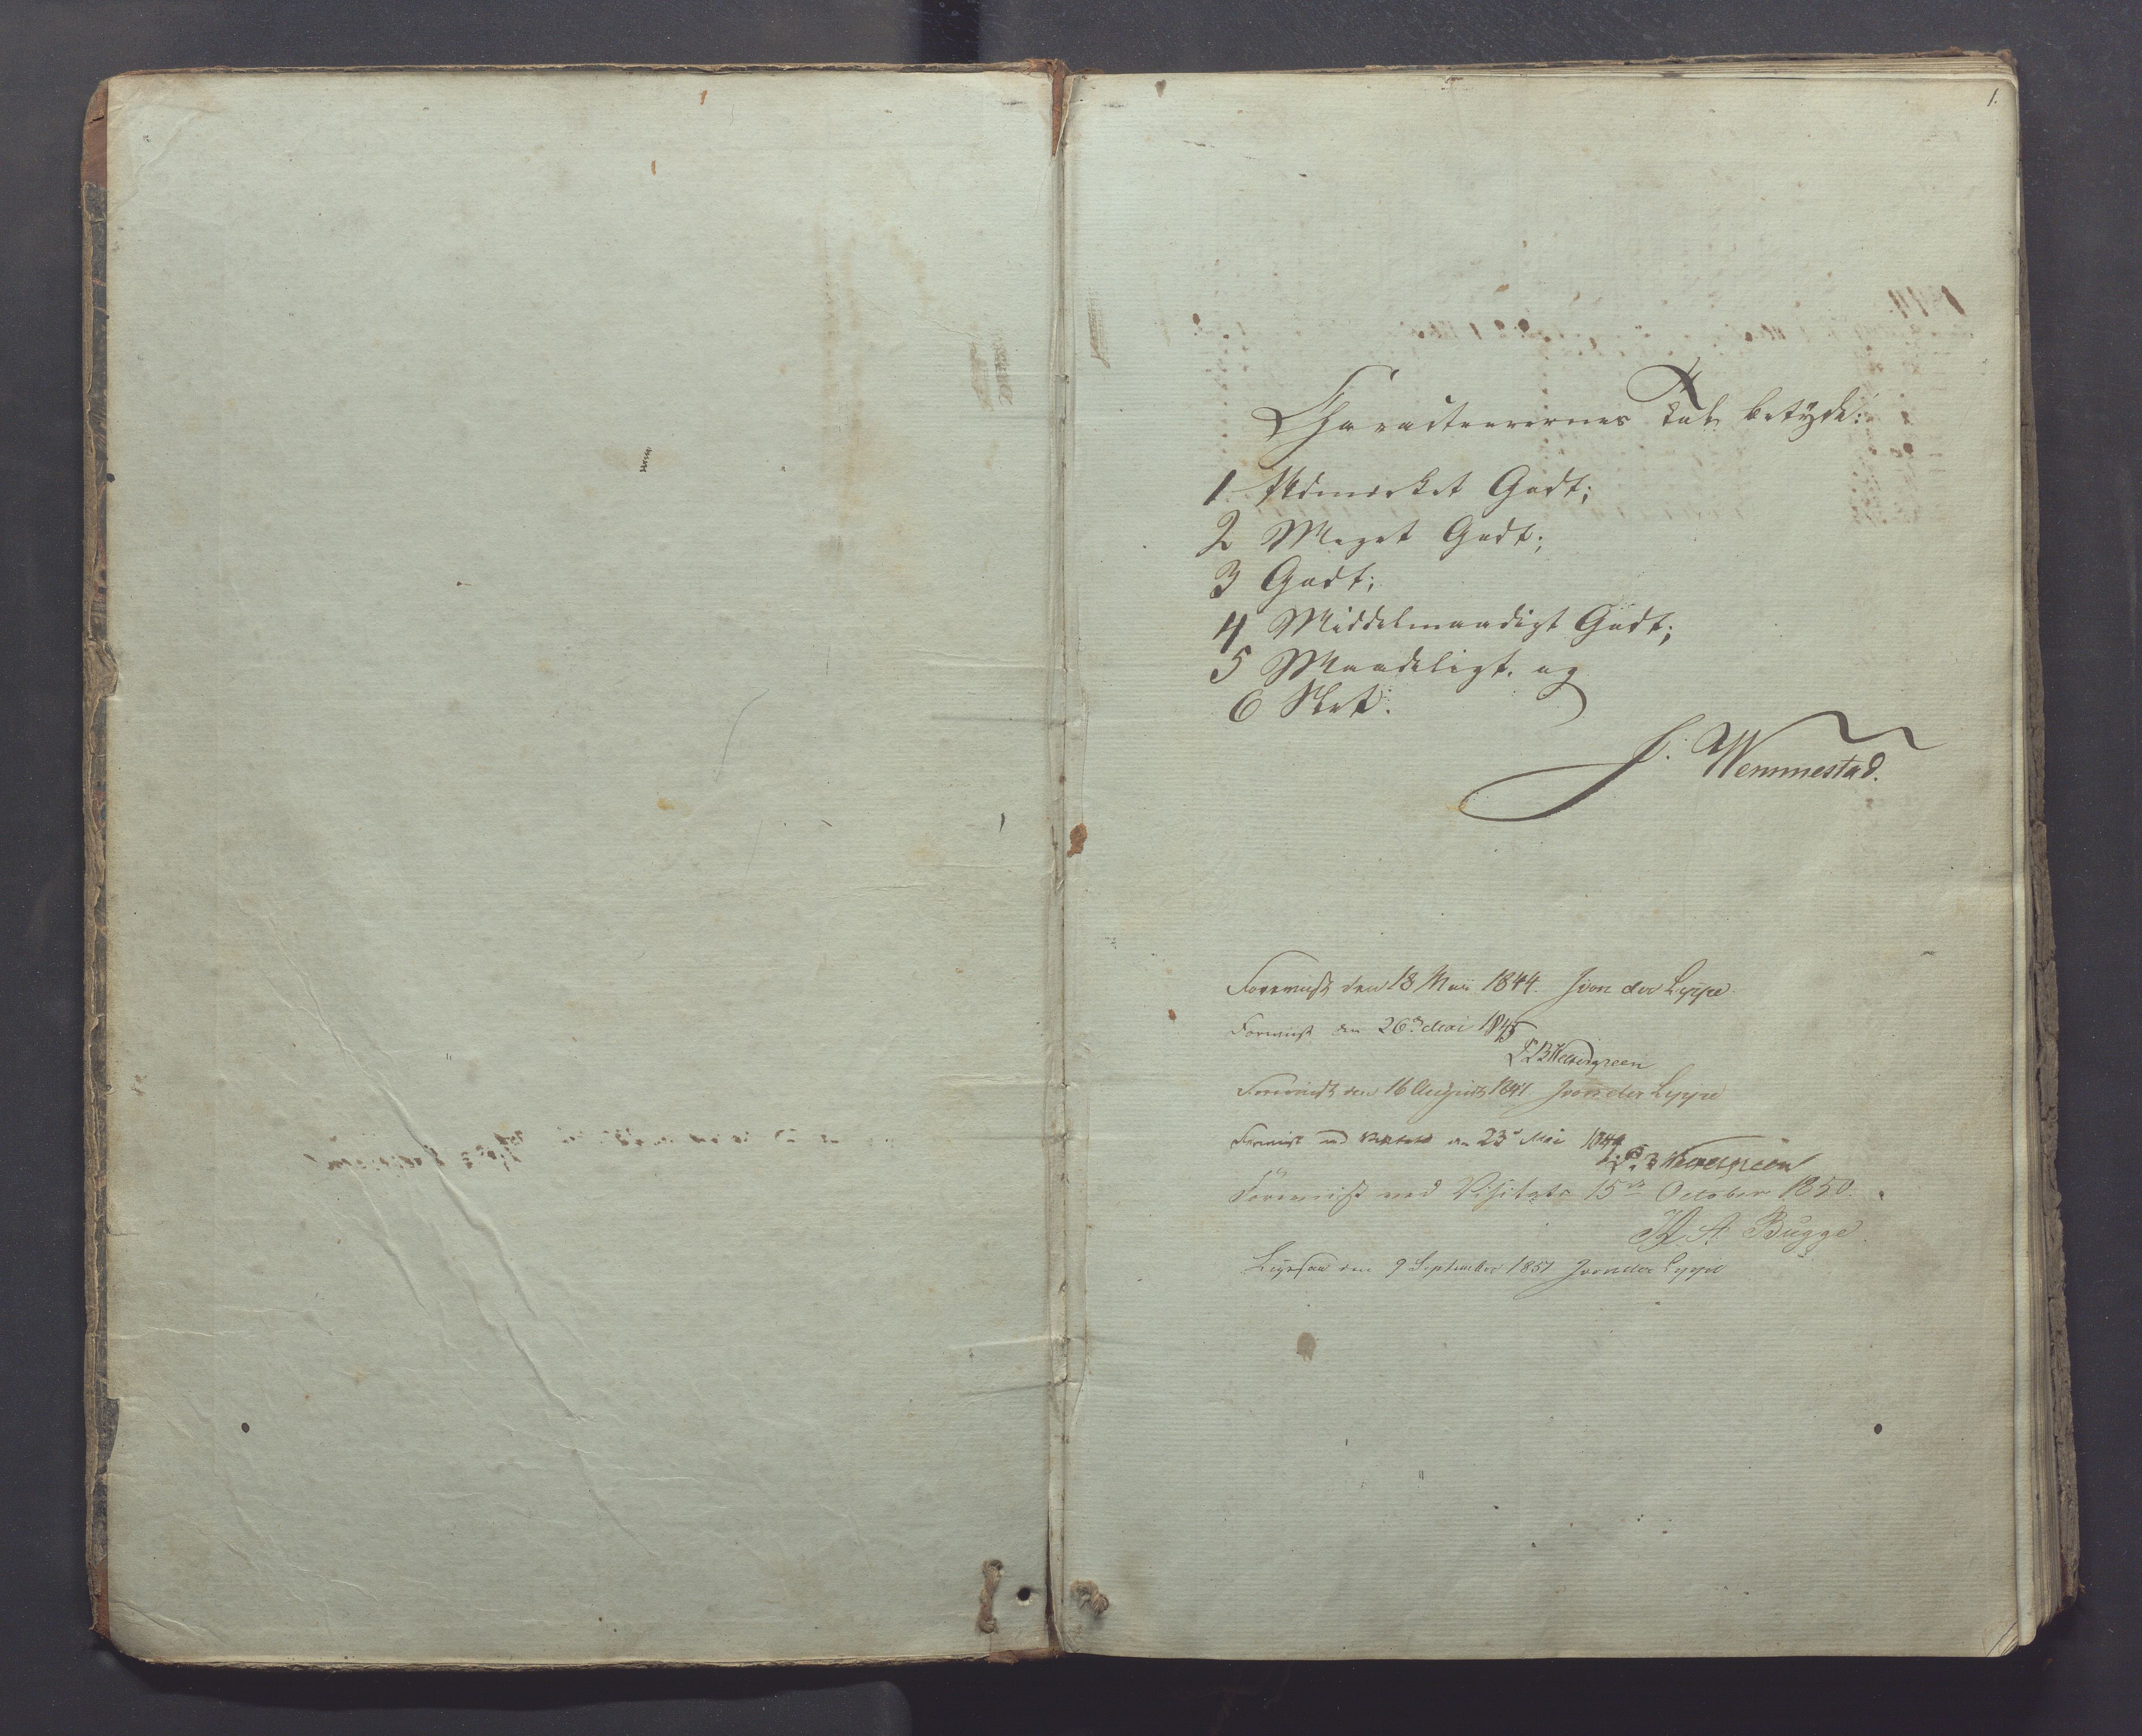 1.
Characterernes Tal betyde:
1 Udmærket Godt;
2 Meget Godt;
3 Godt;
4 Middelmaadigt Godt;
5 Maadeligt. og
6 Slet.
J. Wemmestad.
Foreviist den 18 Mai 1844. J von der Lippe
Foreviist den 26de Mai 1845
Foreviist den 16 August 1847 J von der Lippe
Foreviist ved Visitats den 23de Mai 1849
Foreviist ved Visitats 15de October 1850.
A. Bugge.
den 9 September 1851 J von der Lippe